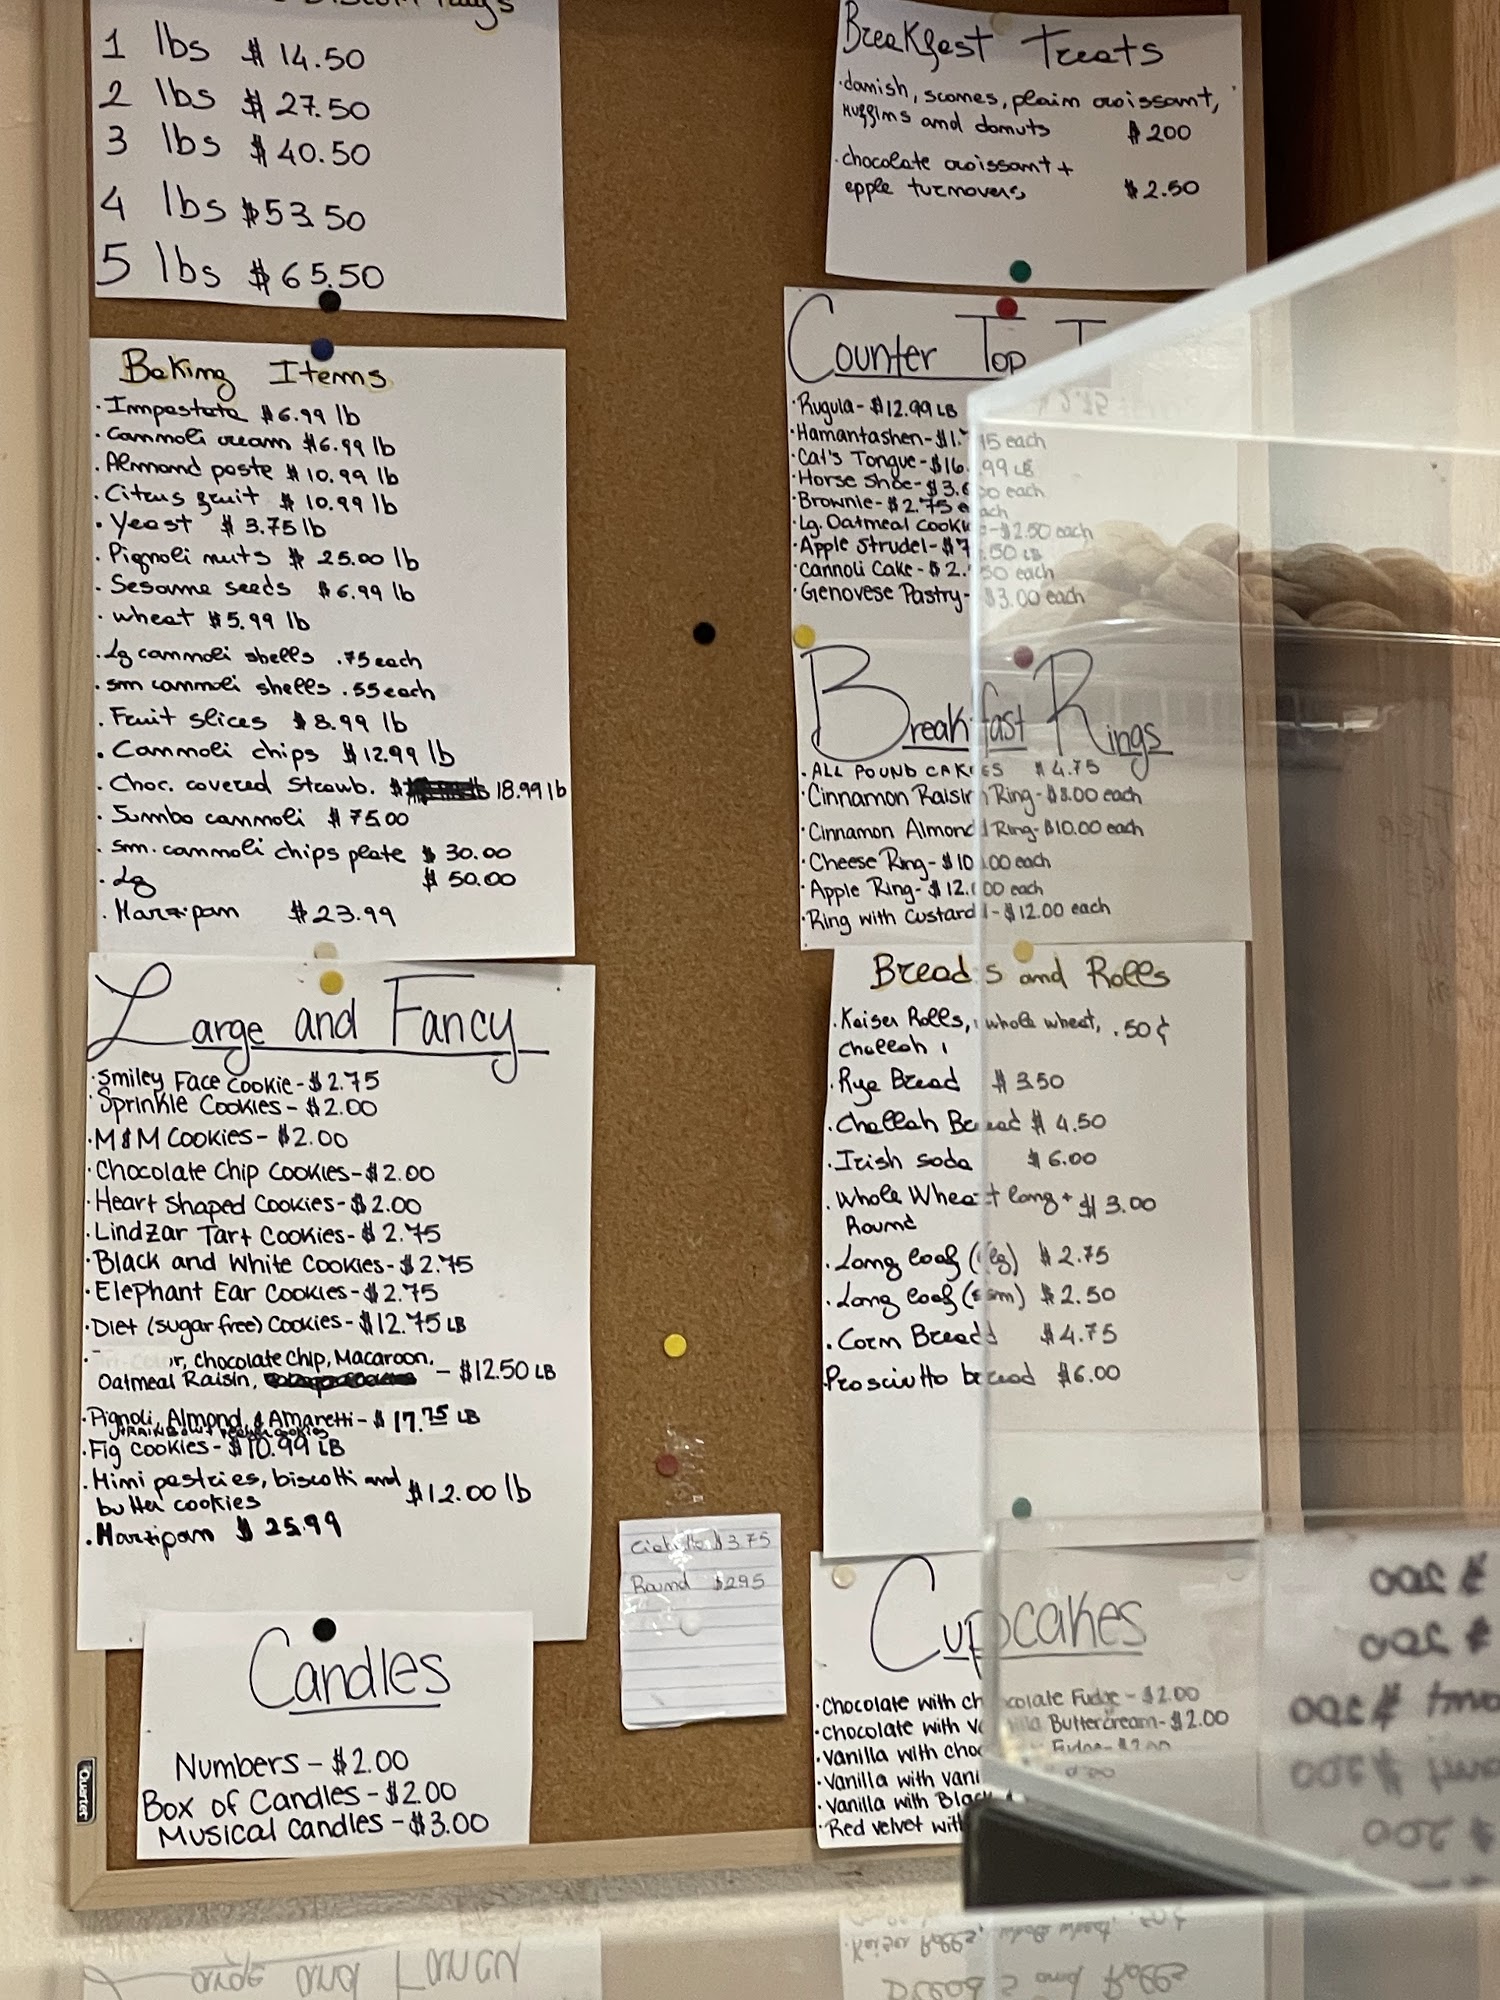 1 lbs $14.50
2 lbs $27.50
3 lbs $40.50
4 lbs $53.50
5 lbs $65.50
Baking Items
· Impastata $6.99 lb
· Cannoli cream $6.99 lb
· Almond paste $10.99 lb
· Citrus fruit $10.99 lb
· Yeast $3.75 lb
· Pignoli nuts $25.00 lb
· Sesame seeds $6.99 lb
· wheat $5.99 lb
· Lg cannoli shells .75 each
· sm cannoli shells .55 each
· Fruit slices $8.99 lb
· Cannoli chips $12.99 lb
· Choc. covered Strawb. 18.99 lb
· Jumbo cannoli $75.00
· sm. cannoli chips plate $30.00
· Lg $50.00
· Marzipan $23.99
Large and Fancy
· Smiley Face Cookie - $2.75
· Sprinkle Cookies - $2.00
· M&M Cookies - $2.00
· Chocolate Chip Cookies - $2.00
· Heart Shaped Cookies - $2.00
· Lindzar Tart Cookies - $2.75
· Black and White Cookies - $2.75
· Elephant Ear Cookies - $2.75
· Diet (sugar free) Cookies - $12.75 LB
· Chocolate Chip, Macaroon,
Oatmeal Raisin, - $12.50 LB
· Pignoli, Almond, & Amaretti - $17.75 LB
· Fig cookies - $10.99 LB
· Mini pastries, biscotti and
butter cookies $12.00 lb
· Marzipan $25.99
Candles
Numbers - $2.00
Box of Candles - $2.00
Musical Candles - $3.00
Quartet
$3.75
Round $2.95
Breakfast Treats
· danish, scones, plain croissant,
muffins and donuts $200
· chocolate croissant +
apple turnovers $2.50
Counter Top
· Rugula - $12.99 LB
· Hamantashen - $1.75 each
· Cat's Tongue - $16.99 LB
· Horse Shoe - $3.00 each
· Brownie - $2.75 each
· Lg. Oatmeal Cookie - $2.50 each
· Apple Strudel - $7.50 LB
· Cannoli Cake - $2.50 each
· Genovese Pastry - $3.00 each
Breakfast Rings
· ALL POUND CAKES $4.75
· Cinnamon Raisin Ring - $8.00 each
· Cinnamon Almond Ring - $10.00 each
· Cheese Ring - $10.00 each
· Apple Ring - $12.00 each
· Ring with Custard - $12.00 each
Breads and Rolls
· Kaiser Rolls, whole wheat, .50¢
challah,
· Rye Bread $3.50
· Challah Bread $4.50
· Irish soda $6.00
· Whole Wheat long + $3.00
Round
· Long loaf (lg) $2.75
· Long loaf (sm) $2.50
· Corn Bread $4.75
Prosciutto bread $6.00
Cupcakes
· Chocolate with chocolate Fudge - $2.00
· Chocolate with Vanilla Buttercream - $2.00
· Vanilla with choc Fudge - $2.00
· Vanilla with vani
· Vanilla with Black
· Red velvet with